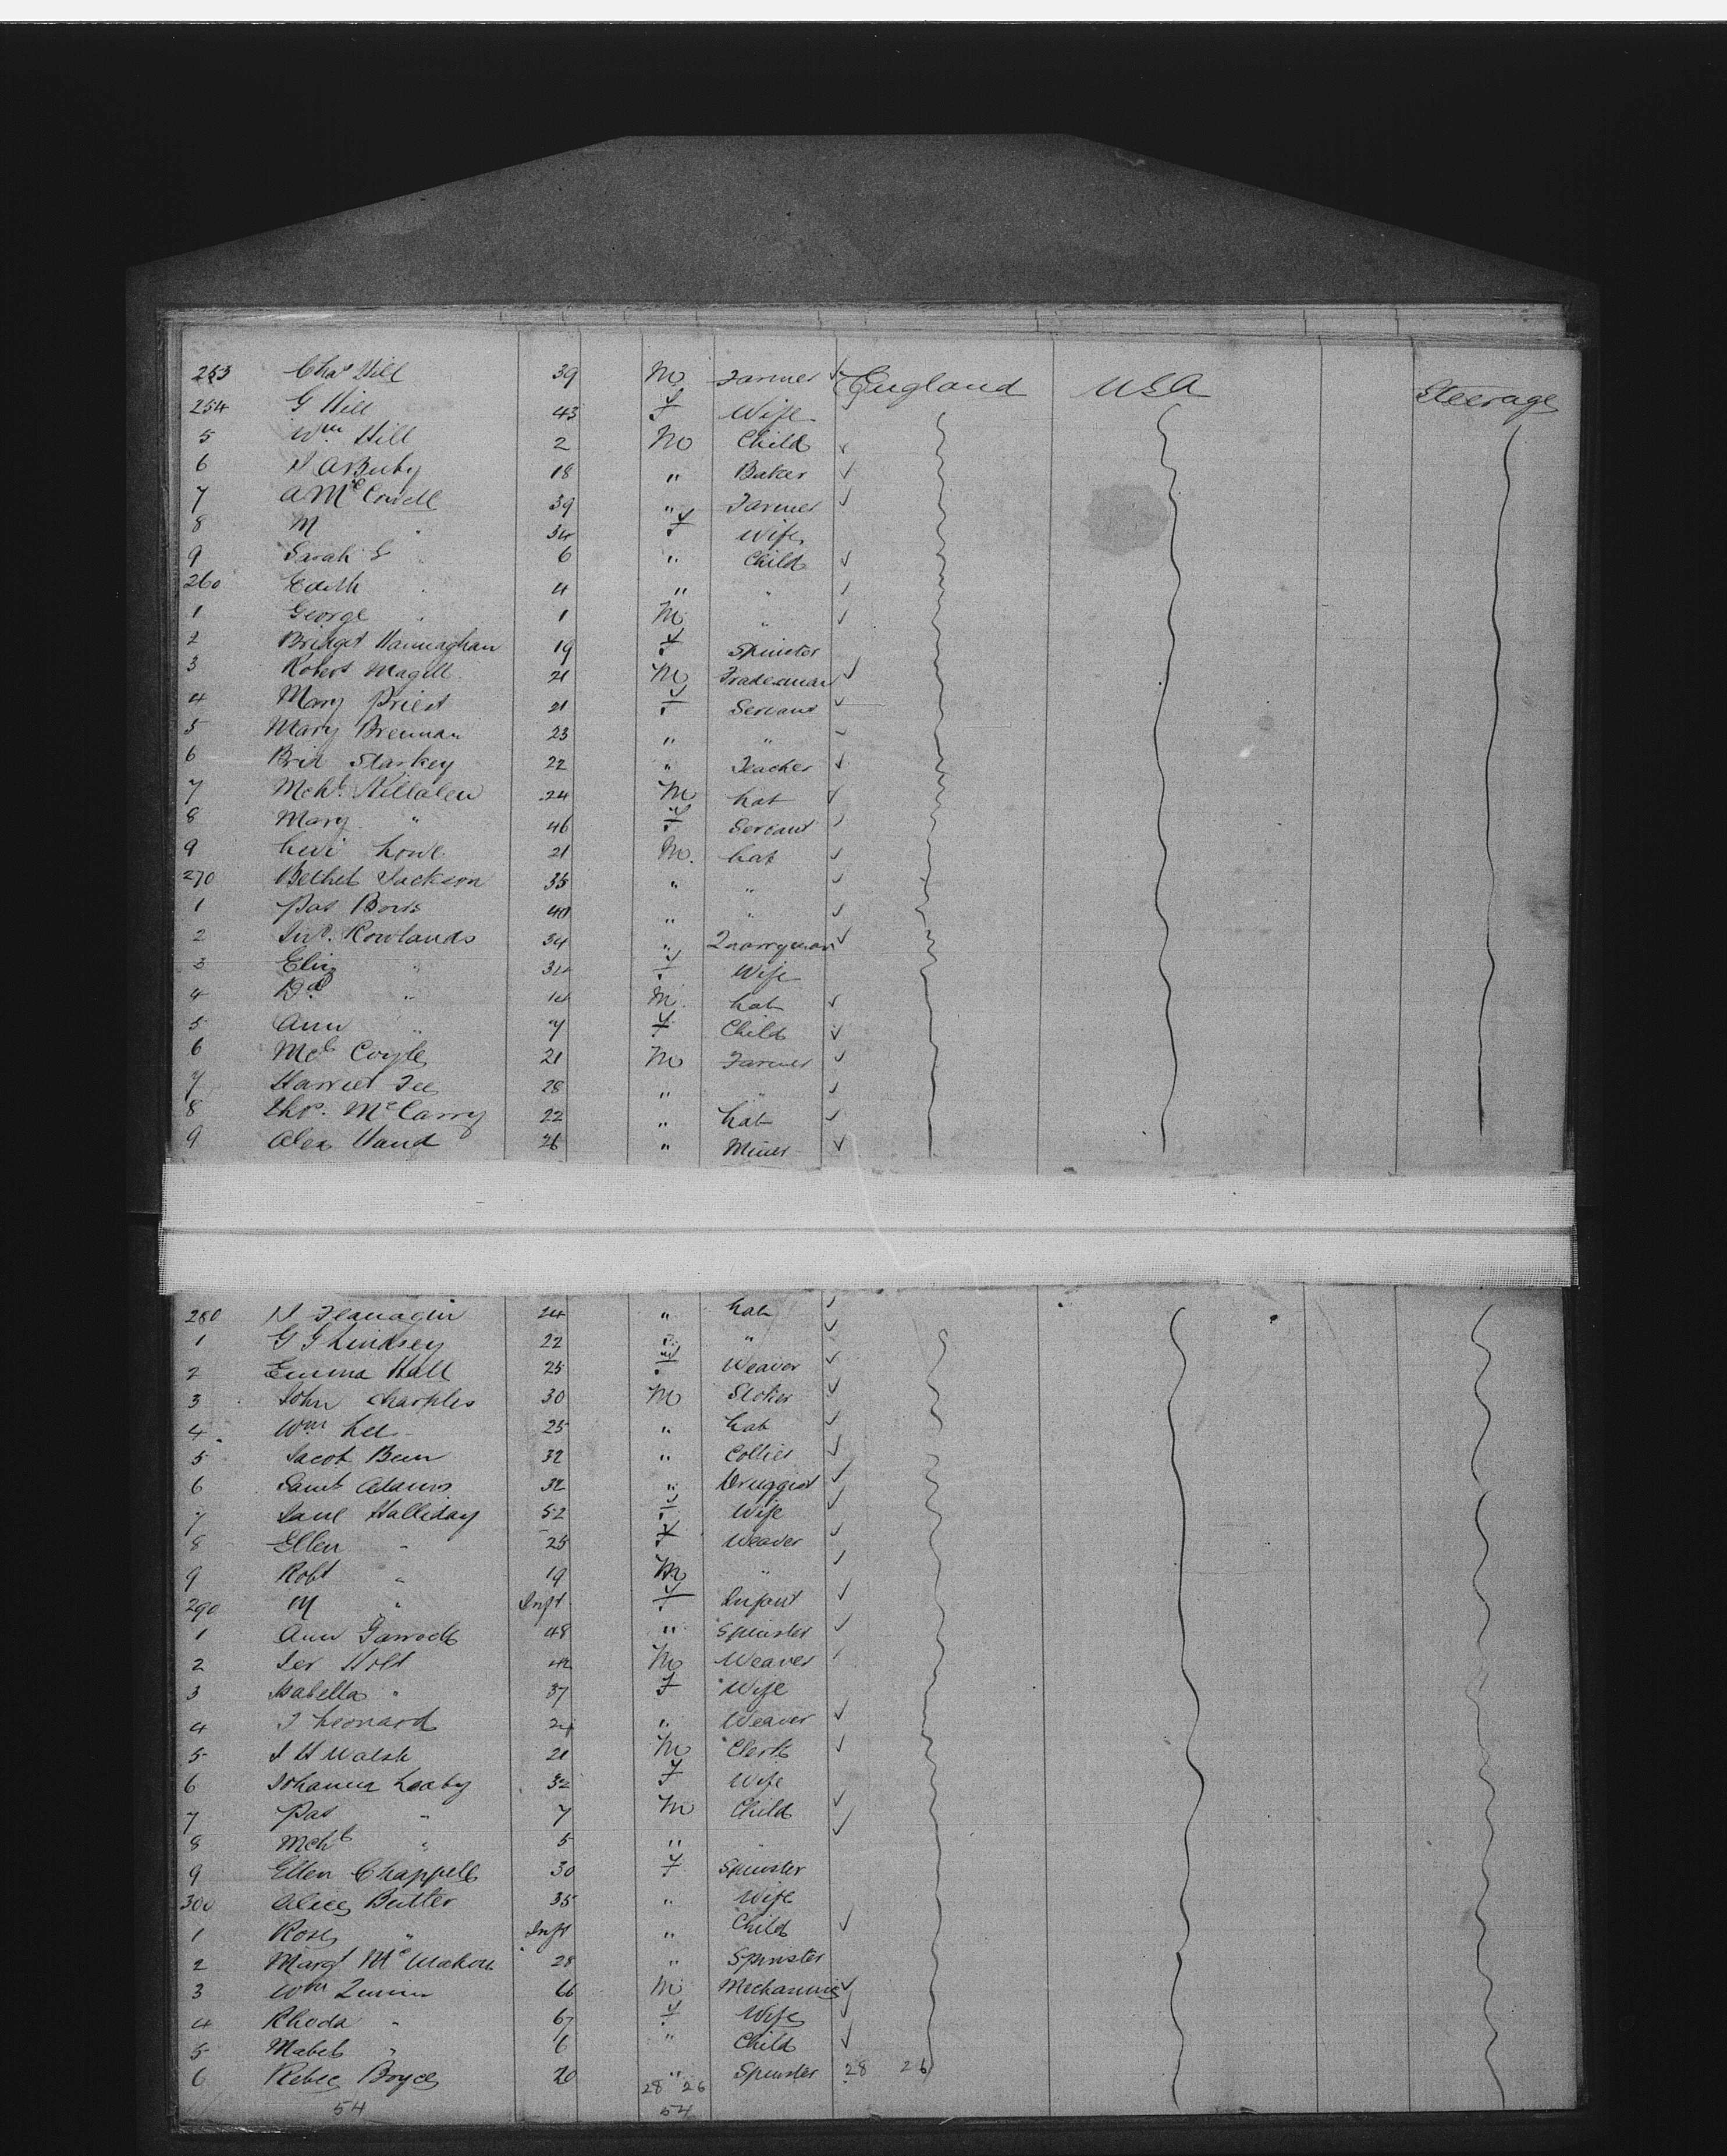 253 Chas Hill 39 M Farmer ✓ England USA Steerage
254 G Hill 43 F Wife ✓
5 Wm Hill 2 M Child ✓
6 18 " Baker ✓
7 A McConnell 39 " Farmer ✓
8 M " 34 F Wife
9 Sarah E " 6 " Child ✓
260 Edith " 4 " " ✓
1 George " 1 M " ✓
2 Bridget Hannaghan 19 F Spinster
3 Robert Magill 21 M Tradesman ✓
4 Mary Priest 21 F Servant ✓
5 Mary Brennan 23 " " ✓
6 Brid Starkey 22 " Teacher ✓
7 Mchl Killalea 24 M Lab ✓
8 Mary " 46 F Servant ✓
9 Levi Lowe 21 M Lab ✓
270 Bethel Jackson 35 " " ✓
1 Pat 40 " " ✓
2 Jno. Rowlands 34 " Quarryman ✓
3 Eliz " 34 F Wife
4 Dd " M Lab ✓
5 Ann " 7 F Child ✓
6 Mcl Coyle 21 M Farmer ✓
7 Harriet Lee 28 " " ✓
8 Thos. McCarry 22 " Lab ✓
9 Alex Hand 26 " Miner ✓
280 Flanagin 24 " Lab ✓
1 G G Lindsey 22 " " ✓
2 Emma Hall 25 F Weaver ✓
3 John Sharples 30 M Stoker ✓
4 Wm Lee 25 " Lab ✓
5 Jacob 32 " Collier ✓
6 Saml Adams 32 " Druggist ✓
7 Halliday 52 F Wife ✓
8 Ellen " 25 F Weaver ✓
9 Robt " 19 M " ✓
290 M " Inft F Infant ✓
1 Ann 48 " Spinster ✓
2 Holt 42 M Weaver ✓
3 Isabella " 37 F Wife
4 Leonard 24 " Weaver ✓
5 J H Walsh 21 M Clerk ✓
6 Johanna Leahy 32 F Wife
7 Pat " 7 M Child ✓
8 Mchl " 5 " " ✓
9 Ellen Chappell 30 F Spinster
300 Alice Butler 35 " Wife
1 Rose " Inft " Child ✓
2 Margt McMahon 28 " Spinster
3 Wm Quinn 66 M Mechanic ✓
4 Rhoda " 67 F Wife ✓
5 Mabel " 6 " Child ✓
6 Rebec Boyce 20 " Spinster 28 26
28 26
54 54